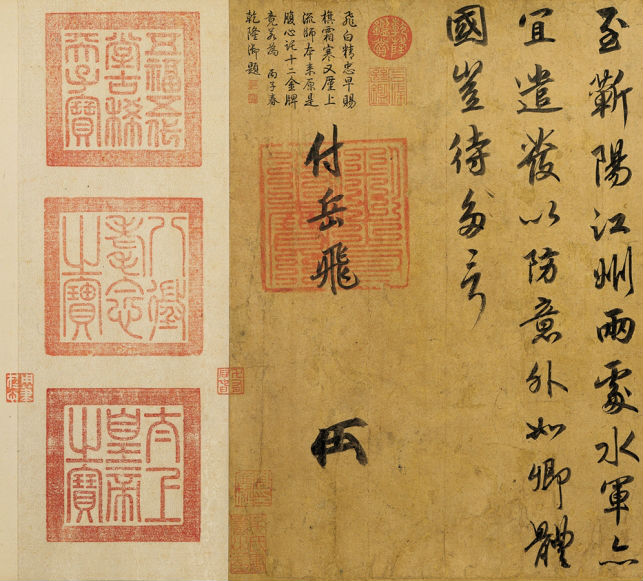 至蘄陽江州兩處水軍亦
宜遣發以防意外如卿體
國豈待多言
付岳飛
飛白精忠早賜
旗霜寒又厪上
流師本來原是
腹心託十二金牌
竟若為 丙子春
乾隆御題
五福五代
堂古稀
天子寶
八徵
耄念
之寶
太上
皇帝
之寶